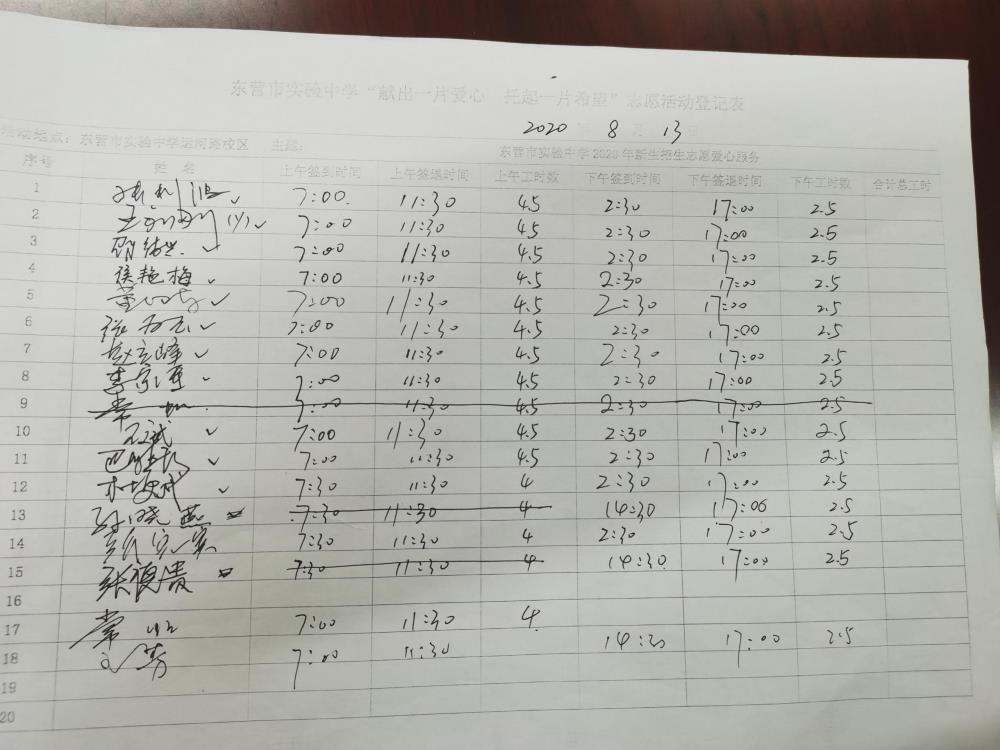 东营市实验中学“献出一片爱心 托起一片希望”志愿活动登记表
2020 年 8 月 13 日
活动地点：东营市实验中学运河路校区 主题： 东营市实验中学2020年新生招生志愿爱心服务
序号 姓 名 上午签到时间 上午签退时间 上午工时数 下午签到时间 下午签退时间 下午工时数 合计总工时
1 7:00 11:30 4.5 2:30 17:00 2.5
2 7:00 11:30 4.5 2:30 17:00 2.5
3 7:00 11:30 4.5 2:30 17:00 2.5
4 侯艳梅 7:00 11:30 4.5 2:30 17:00 2.5
5 7:00 11:30 4.5 2:30 17:00 2.5
6 7:00 11:30 4.5 2:30 17:00 2.5
7 赵京峰 7:00 11:30 4.5 2:30 17:00 2.5
8 7:00 11:30 4.5 2:30 17:00 2.5
9 7:00 11:30 4.5 2:30 17:00 2.5
10 7:00 11:30 4.5 2:30 17:00 2.5
11 7:00 11:30 4.5 2:30 17:00 2.5
12 7:30 11:30 4 2:30 17:00 2.5
13 孙晓燕 7:30 11:30 4 14:30 17:00 2.5
14 7:30 11:30 4 2:30 17:00 2.5
15 张俊贵 7:30 11:30 4 14:30 17:00 2.5
16
17 7:00 11:30 4
18 7:00 11:30 14:30 17:00 2.5
19
20